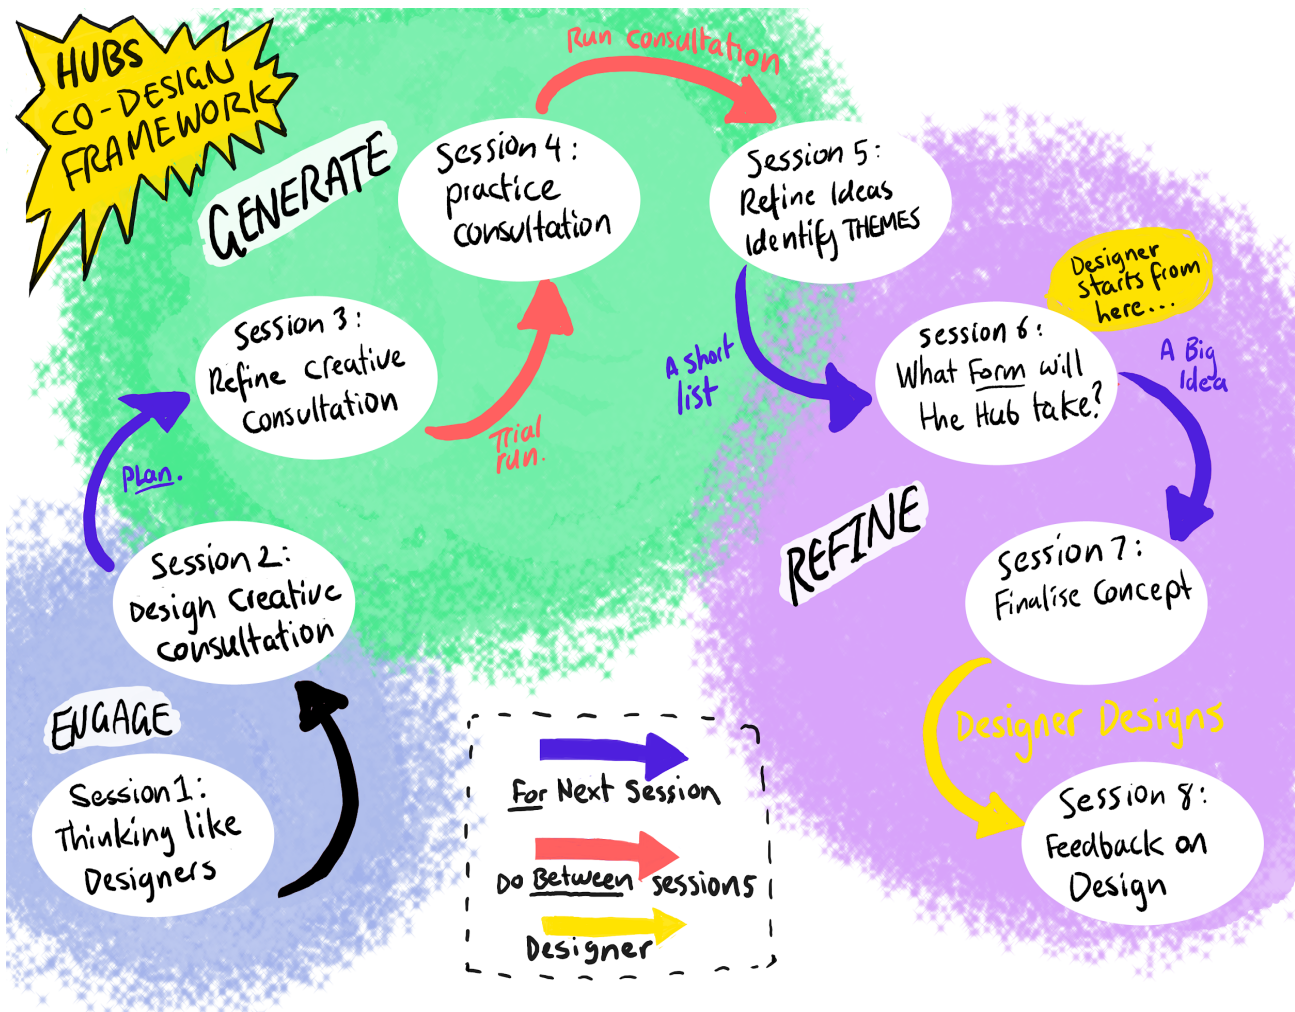 HUBS
CO-DESIGN
FRAMEWORK
GENERATE
Run Consultation
Session 4:
practice
consultation
Session 5:
Refine Ideas
Identify THEMES
Designer
starts from
here...
Session 3:
Refine Creative
Consultation
Trial
run.
A short
list
Session 6:
What Form will
the Hub take?
A Big
Idea
Plan.
REFINE
Session 2:
Design Creative
Consultation
Session 7:
Finalise Concept
ENGAGE
Session 1:
Thinking like
Designers
Designer Designs
Session 8:
Feedback on
Design
For Next Session
Do Between sessions
Designer